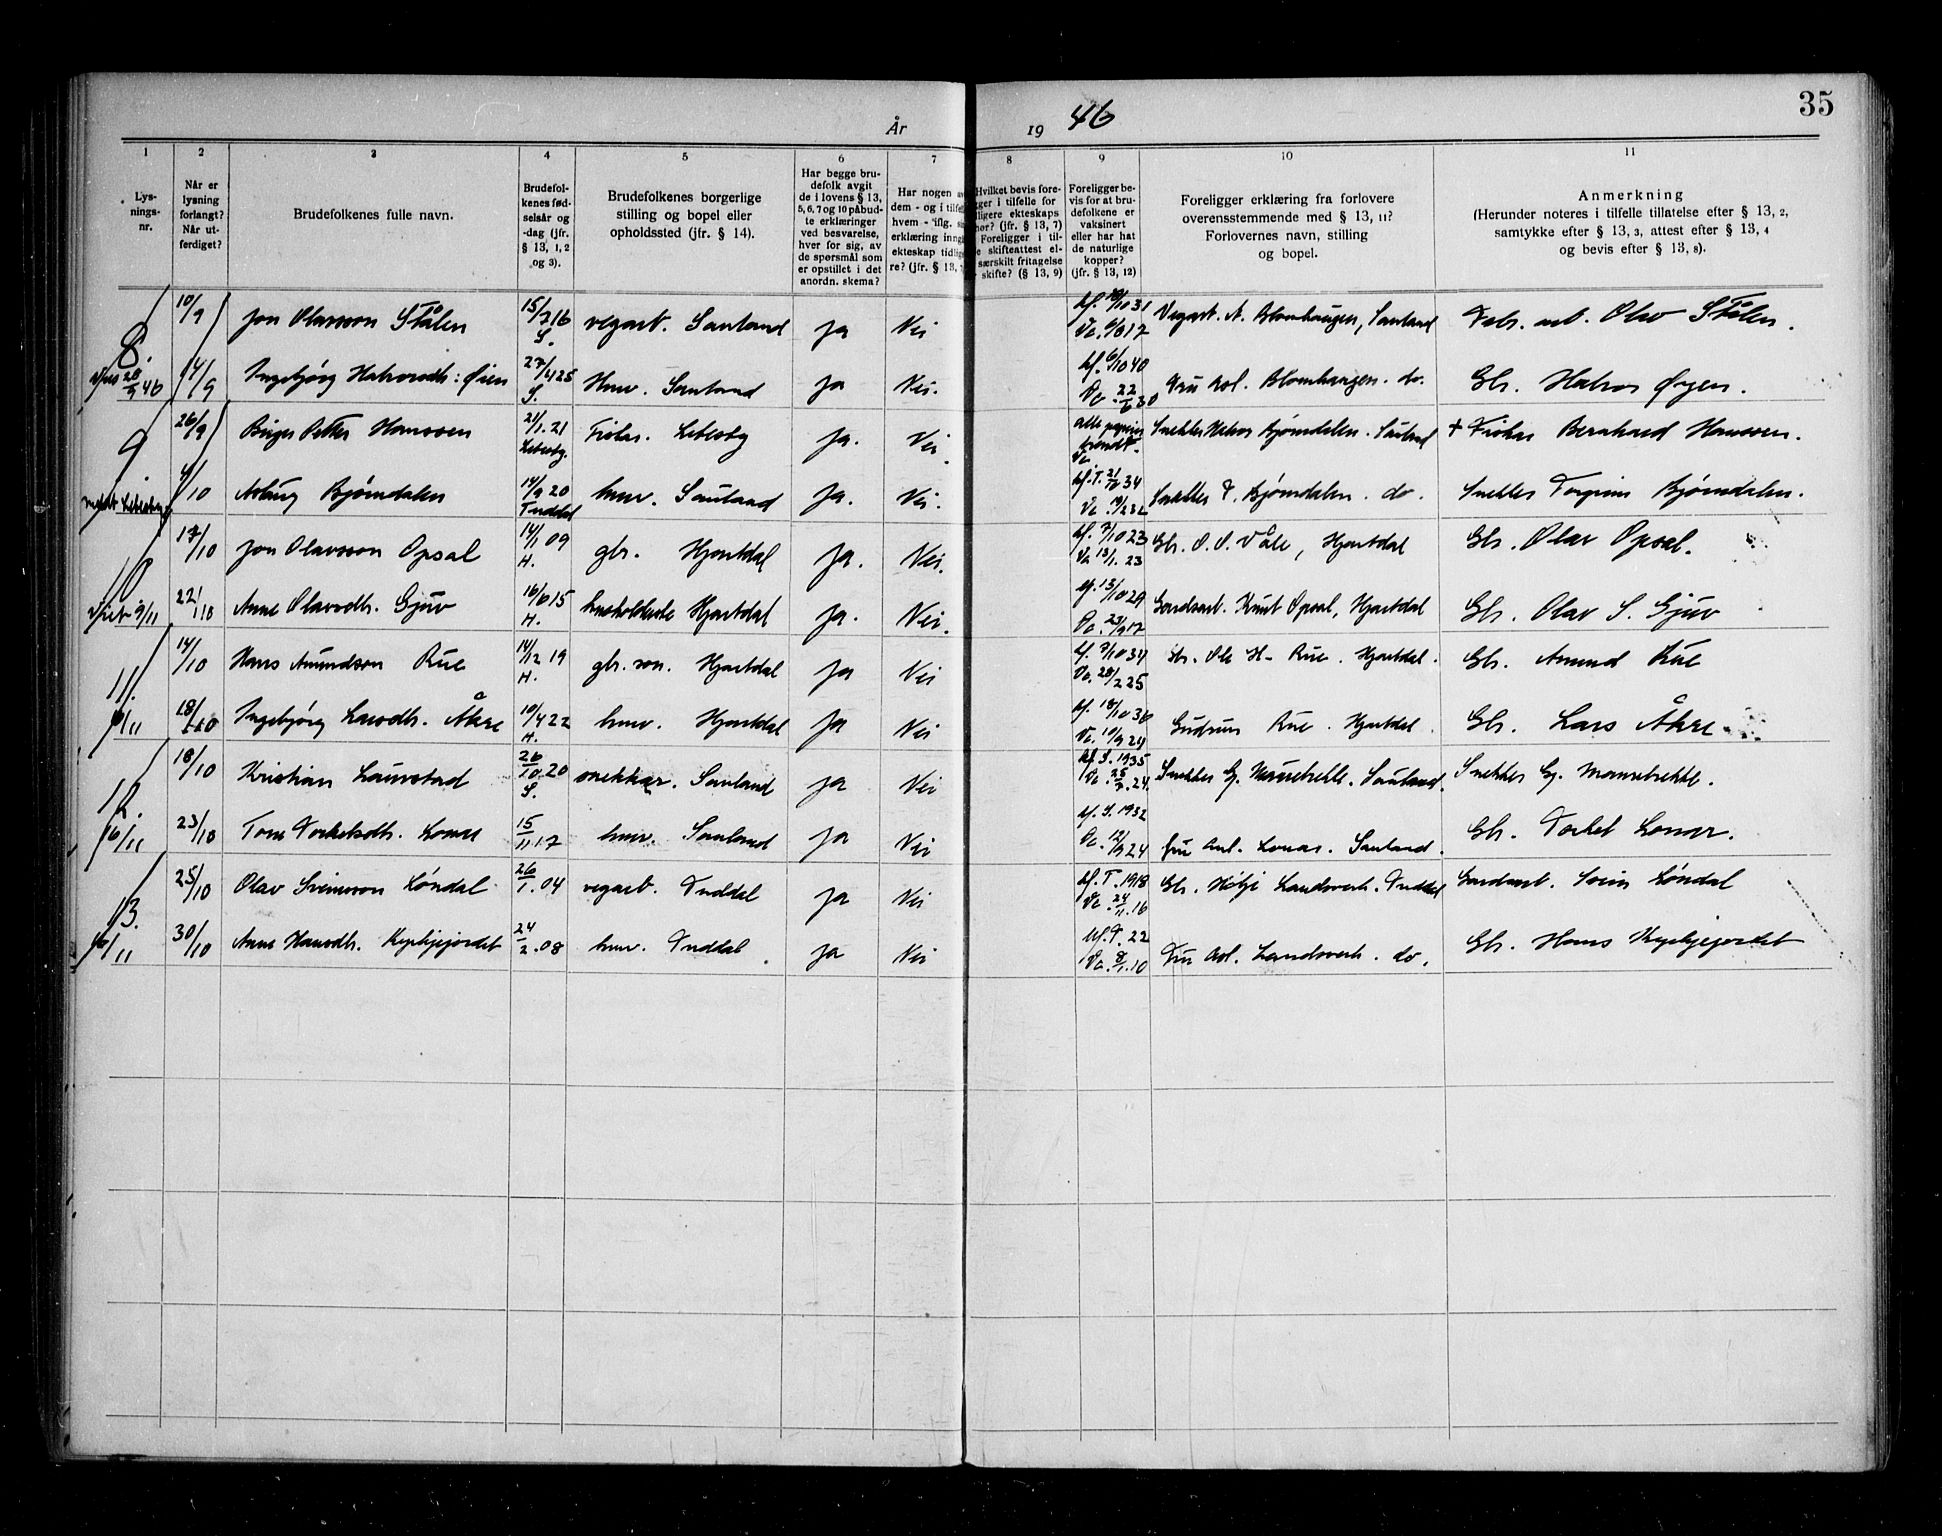 35
År 19 46
1 2 3 4 5 6 7 8 9 10 11
Lys-
nings-
nr.
Når er
lysning
forlangt?
Når ut-
ferdiget?
Brudefolkenes fulle navn.
Brudefol-
kenes fød-
selsår og
-dag (jfr.
§ 13, 1, 2
og 3).
Brudefolkenes borgerlige
stilling og bopel eller
opholdssted (jfr. § 14).
Har begge bru-
defolk avgit
de i lovens § 13,
5, 6, 7 og 10 påbud-
te erklæringer
ved besvarelse,
hver for sig, av
de spørsmål som
er opstillet i det
anordn. skema?
Har nogen av
dem - og i tilfel
hvem - iflg. sin
erklæring inngå
ekteskap tidlige
re? (jfr. § 13,
Hvilket bevis fore-
gger i tilfelle for
ligere ekteskaps
hør? (jfr. § 13, 7)
Foreligger i til-
e skifteattest el-
særskilt fritagelse
skifte? (§ 13, 9)
Foreligger be-
vis for at bru-
defolkene er
vaksinert
eller har hat
de naturlige
kopper?
(jfr. § 13, 12)
Foreligger erklæring fra forlovere
overensstemmende med § 13, 11?
Forlovernes navn, stilling
og bopel.
Anmerkning
(Herunder noteres i tilfelle tillatelse efter § 13, 2,
samtykke efter § 13, 3, attest efter § 13, 4
og bevis efter § 13, 8).
8. 10/9 Jon Olavsson Stålen 15/2 16 S. vegarb. Sauland ja Nei Vegarb. A. Blomhaugen, Sauland Fabr. arb. Olav Stålen.
28/9 46 14/9 Ingebjørg Halvorsdtr: Øien 27/4 25 S. Hmv. Sauland ja Nei. kf. 6/10 40 Va. 22/6 30 Fru Asl. Blomhaugen. do. Gbr. Halvor Øyen.
9. 26/9 Birger Petter Hanssen 21/1. 21 Lebesby. Fisker. Lebesby ja. Nei. alle papirer Snekker Halvor Bjørndalen. Sauland + Fisker Bernhard Hanssen.
Lebesby 4/10 Aslaug Bjørndalen 14/9 20 Tuddal hmv. Sauland ja. Nei. Snekker T. Bjørndalen. do. Snekker Torgrim Bjørndalen.
10 17/10 Jon Olavsson Opsal 14/1 09 H. gbr. Hjartdal ja. Nei. kf. 7/10 23 Va 13/1. 23 Gbr. O. O. Våle, Hjartdal Gbr. Olav Opsal.
Viet 9/11 22/10 Anne Olavsdtr. Gjuv 16/6 15 H. husholderske Hjartdal ja. Nei. Gardsarb. Knut Opsal, Hjartdal Gbr. Olav S. Gjuv
11. 14/10 Hans Amundson Rue 14/12 19 H. gbr. søn. Hjartdal ja Nei kf. 7/10 34 Va. 20/2 25 Gbr. Ole H. Rue. Hjartdal. Gbr. Amund Rue
18/10 Ingebjørg Larsdtr. Åkre 10/4 22 H. hmv. Hjartdal ja Nei kf. 18/10 36 Va. 10/9 24 Gudrun Rue. Hjartdal. Gbr. Lars Åkre
12. 18/10 Kristian Launstad 26/10. 20 S. snekker. Sauland ja Nei kf. S. 1935 Snekker Gj. Mausetrekke. Sauland. Snekker Gj. Mausetrekke.
16/11 23/10 Tone Torkelsdtr. Lonar 15/11 17 hmv. Sauland ja Nei kf. S. 1932 Va. 12/9 24 fru Anl. Lonar. Sauland. Gbr. Torkel Lonar.
13. 25/10 Olav Sveinsson Løndal 26/1. 04 vegarb. Tuddal ja Nei kf. T. 1918 Va. 24/11. 16 Gbr. Høljé Landsverk. Tuddal Gardsarb. Svein Løndal
16/11 30/10 Anne Hansdtr. Kyrkjejordet 24/2. 08 hmv. Tuddal. ja Nei kf. T. 22 Va. 8/1. 10 Fru Asl. Landsverk. do. Gbr. Hans Kyrkjejordet